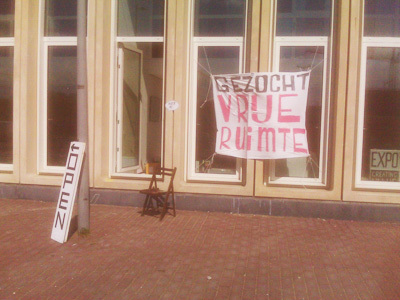 GEZOCHT
VRIJE
RUIMTE
OPEN
EXPO